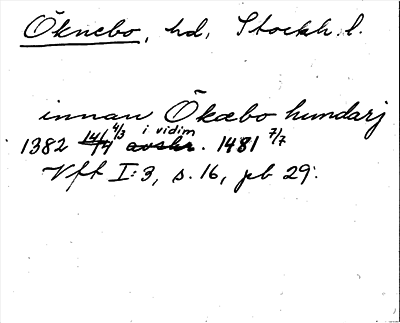 Öknebo, hd, Stockh. l.
innan Ökæbo hundarj
1382 14/4 4/3 avskr. i vidim 1481 7/7
Vft I:3, s. 16, pb 29.